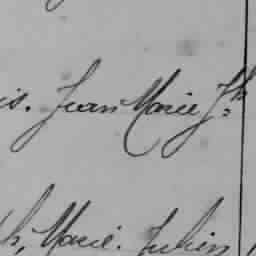 is. Jean Marie Jh
h, Marie. Julien